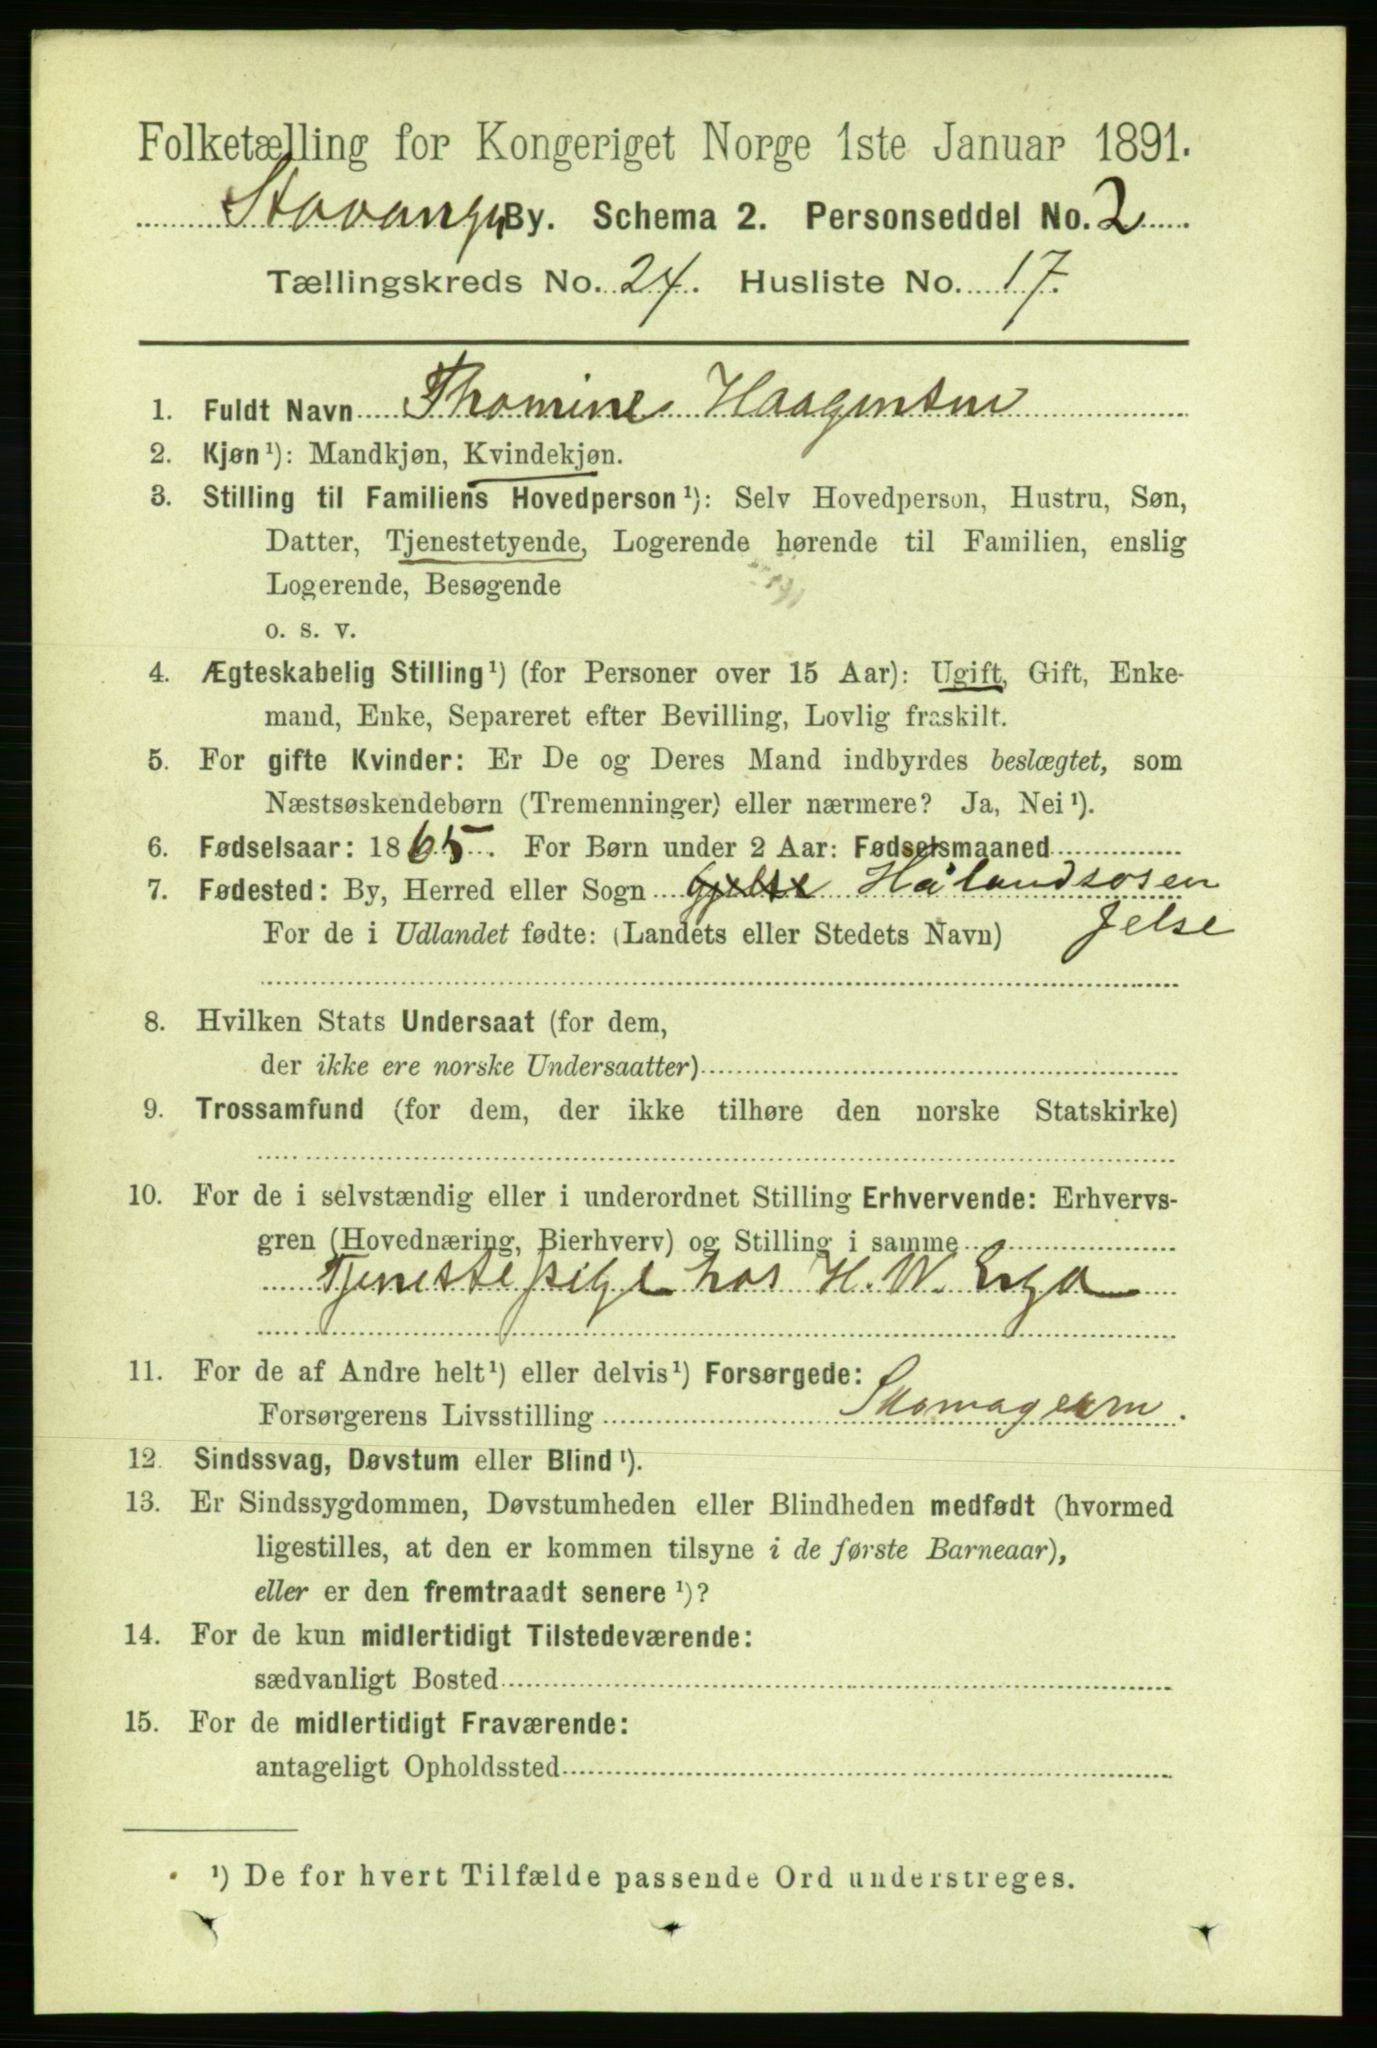 Folketælling for Kongeriget Norge 1ste Januar 1891.
Stavanger By. Schema 2. Personseddel No. 2
Tællingskreds No. 24. Husliste No. 17.
1. Fuldt Navn Thomine Haagensen
2. Kjøn¹): Mandkjøn, Kvindekjøn.
3. Stilling til Familiens Hovedperson¹): Selv Hovedperson, Hustru, Søn,
Datter, Tjenestetyende, Logerende hørende til Familien, enslig
Logerende, Besøgende
o. s. v.
4. Ægteskabelig Stilling¹) (for Personer over 15 Aar): Ugift, Gift, Enke-
mand, Enke, Separeret efter Bevilling, Lovlig fraskilt.
5. For gifte Kvinder: Er De og Deres Mand indbyrdes beslægtet, som
Næstsøskendebørn (Tremenninger) eller nærmere? Ja, Nei¹).
6. Fødselsaar: 1865. For Børn under 2 Aar: Fødselsmaaned
7. Fødested: By, Herred eller Sogn Gjelse Hålandsosen
For de i Udlandet fødte: (Landets eller Stedets Navn) Jelse
8. Hvilken Stats Undersaat (for dem,
der ikke ere norske Undersaatter)
9. Trossamfund (for dem, der ikke tilhøre den norske Statskirke)
10. For de i selvstændig eller i underordnet Stilling Erhvervende: Erhvervs-
gren (Hovednæring, Bierhverv) og Stilling i samme
Tjenestepige hos H. W. Erga
11. For de af Andre helt¹) eller delvis¹) Forsørgede:
Forsørgerens Livsstilling
12. Sindssvag, Døvstum eller Blind¹).
13. Er Sindssygdommen, Døvstumheden eller Blindheden medfødt (hvormed
ligestilles, at den er kommen tilsyne i de første Barneaar),
eller er den fremtraadt senere ¹)?
14. For de kun midlertidigt Tilstedeværende:
sædvanligt Bosted
15. For de midlertidigt Fraværende:
antageligt Opholdssted
¹) De for hvert Tilfælde passende Ord understreges.